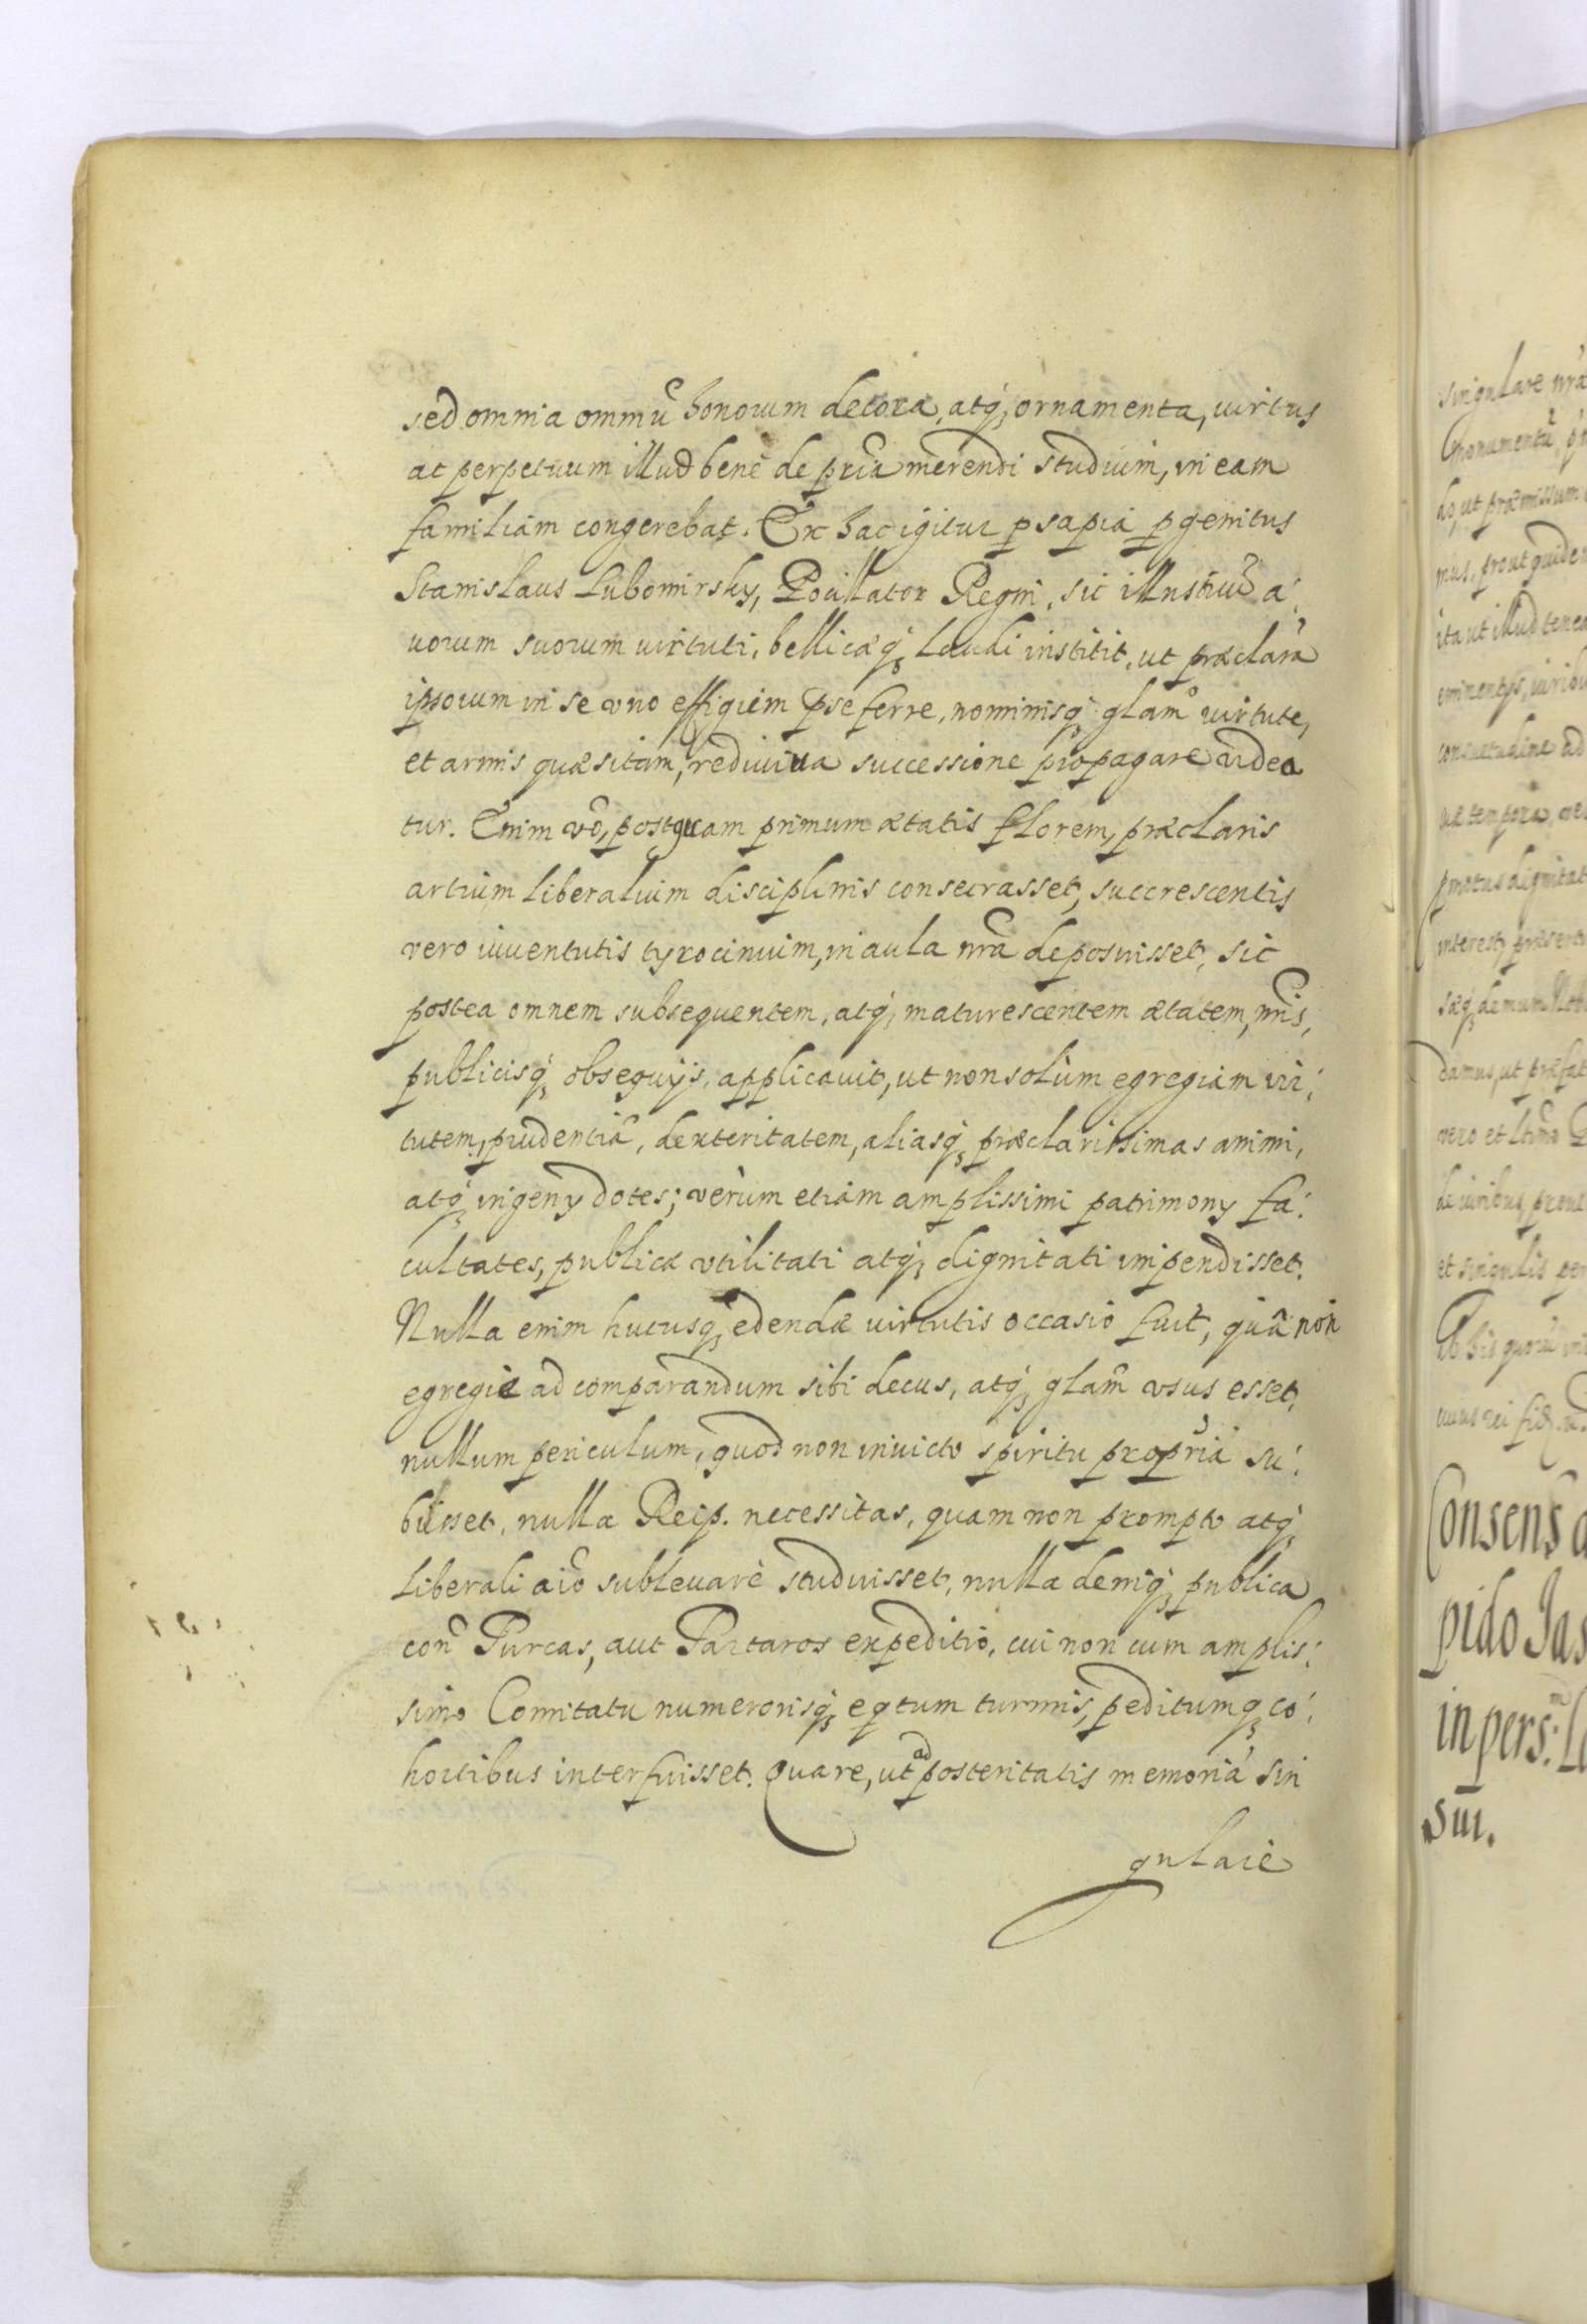 sed omnia omniũ bonorum decora, atq; ornamenta, uirtus
ac perpetuum illud benè de pr̃ia merendi studium, in eam
familiam congerebat. Ex hac igitur psapia pgenitus
Stanislaus Lubomirsky, Pocillator Regni, sic illustriũ a:
uorum suorum uirtuti, bellicæq; laudi institit, ut præclarã
ipsorum in se vno effigiem pseferre, nominisq; glam̃ uirtute,
et armis quæsitam, rediuiua successione propagare videa
tur. Enim vẽo, postquam primum ætatis florem, præclaris
artium liberalium disciplinis consecrasset, succrescentis
vero iuuentutis tyrocinium, in aula nr̃a deposuisset, sic
postea omnem subsequentem, atq; maturescentem ætatem, nr̃is,
publicisq; obsequijs, applicauit, ut non solùm egregiam uir:
tutem, prudentiã, dexteritatem, aliasq; præclarissimas animi,
atq; ingenij dotes; verùm etiam amplissimi patrimonij fa:
cultates, publicæ vtilitati atq; dignitati impendisset.
Nulla enim hucusq; edendæ uirtutis occasio fuit, quâ non
egregie ad comparandum sibi decus, atq; glam̃ vsus esset,
nullum periculum, quod non inuicto spiritu propria su:
bisset, nulla Reip. necessitas, quam non prompto atq;
liberali aĩo subleuare studuisset, nulla deniq; publica
con̄ Turcas, aut Tartaros expeditio, cui non cum amplis:
simo Comitatu numerosisq; eqtum turmis, peditumq; co:
hortibus interfuisset. Quare, ut ad posteritatis memoriã sin
gulare
singulare nr̃æ
monumentũ,
do, ut præmissum
mus, prout quidem
ita ut illud tenea
eminentijs, iuribus
consuetudine ad
tempora
dignitat
interest, præsent
damus, ut præfat
vero et
de iuribus, prout
et singulis
Consens
pido Jas
in pers:m L
sui.